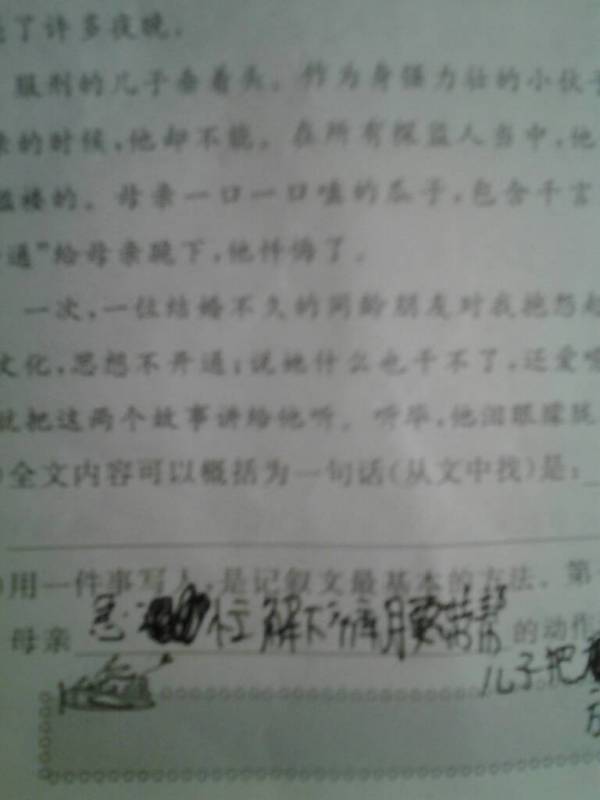 了许多夜晚。
服刑的儿子垂着头。作为身强力壮的小伙子
的时候,他却不能。在所有探监人当中,他
褛的。母亲一口一口嗑的瓜子,包含千言
通”给母亲跪下,他忏悔了。
一次,一位结婚不久的同龄朋友对我抱怨起
文化,思想不开通;说她什么也干不了,还爱
就把这两个故事讲给他听。听毕,他泪眼朦胧
全文内容可以概括为一句话(从文中找)是:
用一件事写人,是记叙文最基本的方法。第一
母亲 忍 住 解下 腰带帮 的动作
儿子把